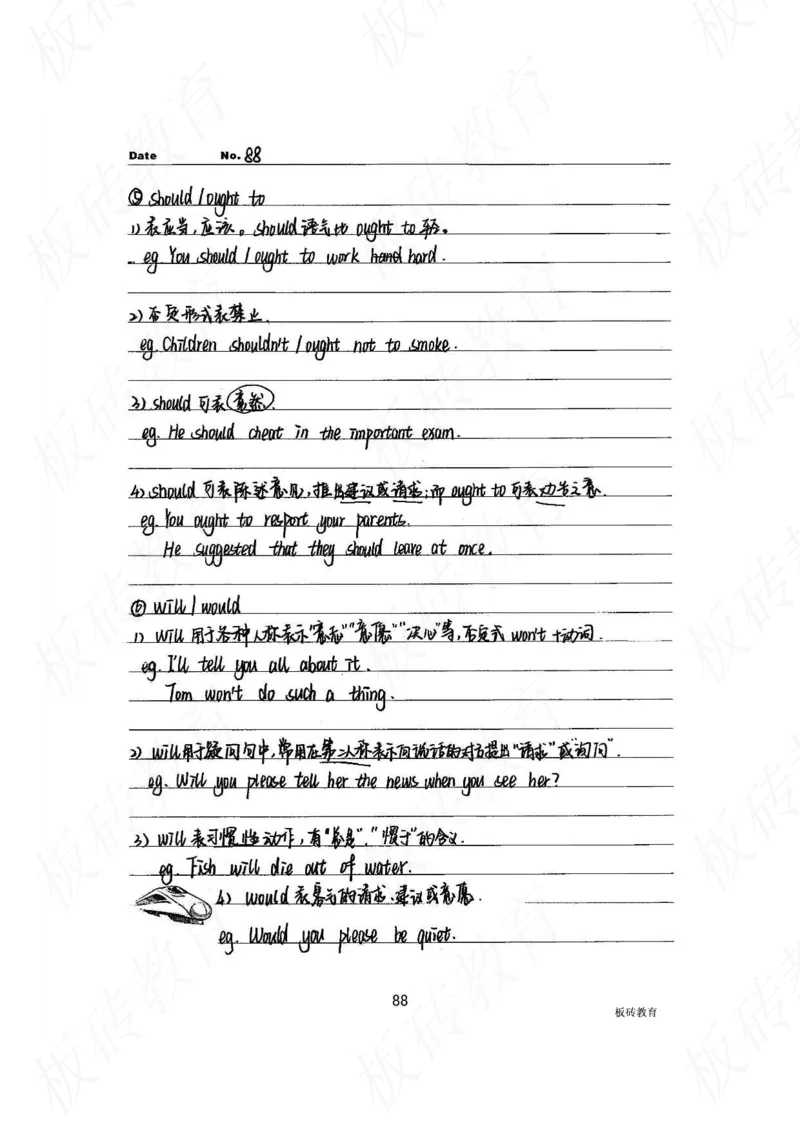 Date No. 88
⑤ should / ought to
1) 表应当,应该。should语气比 ought to 轻。
eg. You should / ought to work hard.
2) 否定形式表禁止.
eg. Children shouldn't / ought not to smoke.
3) should 可表竟然.
eg. He should cheat in the important exam.
4) should 可表陈述意见,提出建议或请求;而 ought to 可表劝告之意.
eg. You ought to resport your parents.
He suggested that they should leave at once.
⑥ will / would
1) will 用于各种人称表示"意志""意愿""决心"等,否定式 won't +动词.
eg. I'll tell you all about it.
Tom won't do such a thing.
2) will用于疑问句中,常用在第二人称表示向说话的对方提出"请求"或"询问".
eg. Will you please tell her the news when you see her?
3) will 表习惯性动作,有"总是","惯于"的含义.
eg. Fish will die out of water.
4) would 表客气的请求、建议或意愿.
eg. Would you please be quiet.
88
板砖教育